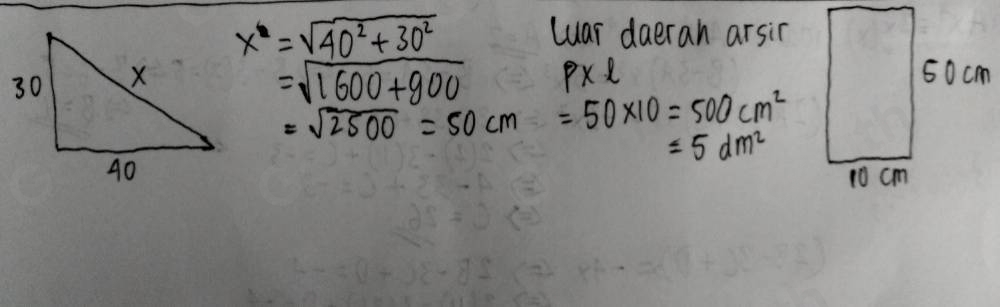 30
x
40
x = √40² + 30²
= √1600 + 900
= √2500 = 50 cm
Luar daerah arsir
p x l
= 50 x 10 = 500 cm²
= 5 dm²
50 cm
10 cm